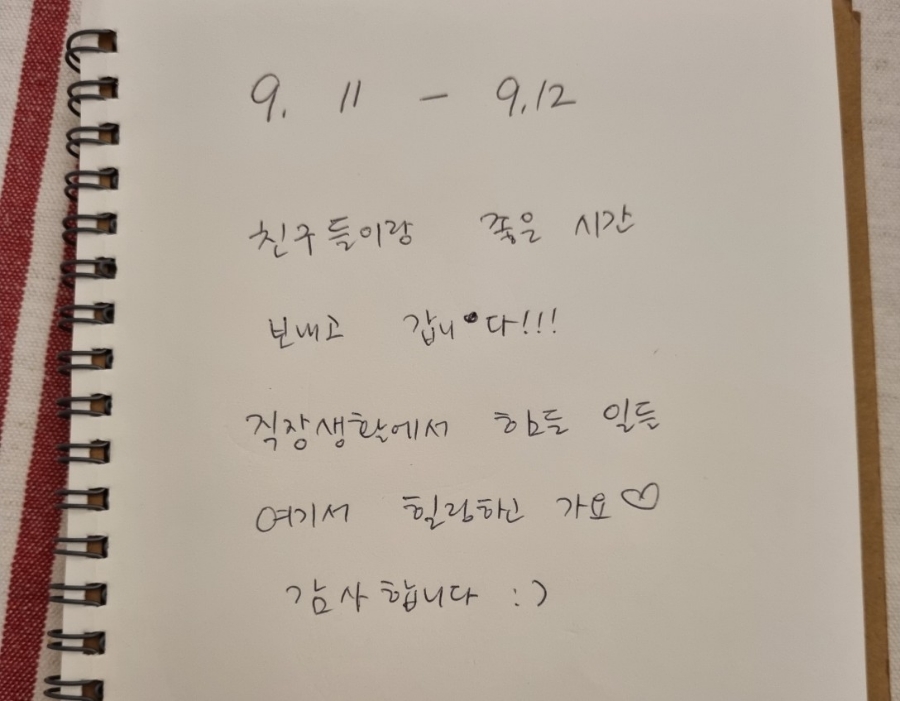 9. 11 - 9.12
친구들이랑 좋은 시간
보내고 갑니다!!!
직장생활에서 힘든 일들
여기서 힐링하고 가요♡
감사합니다 :)